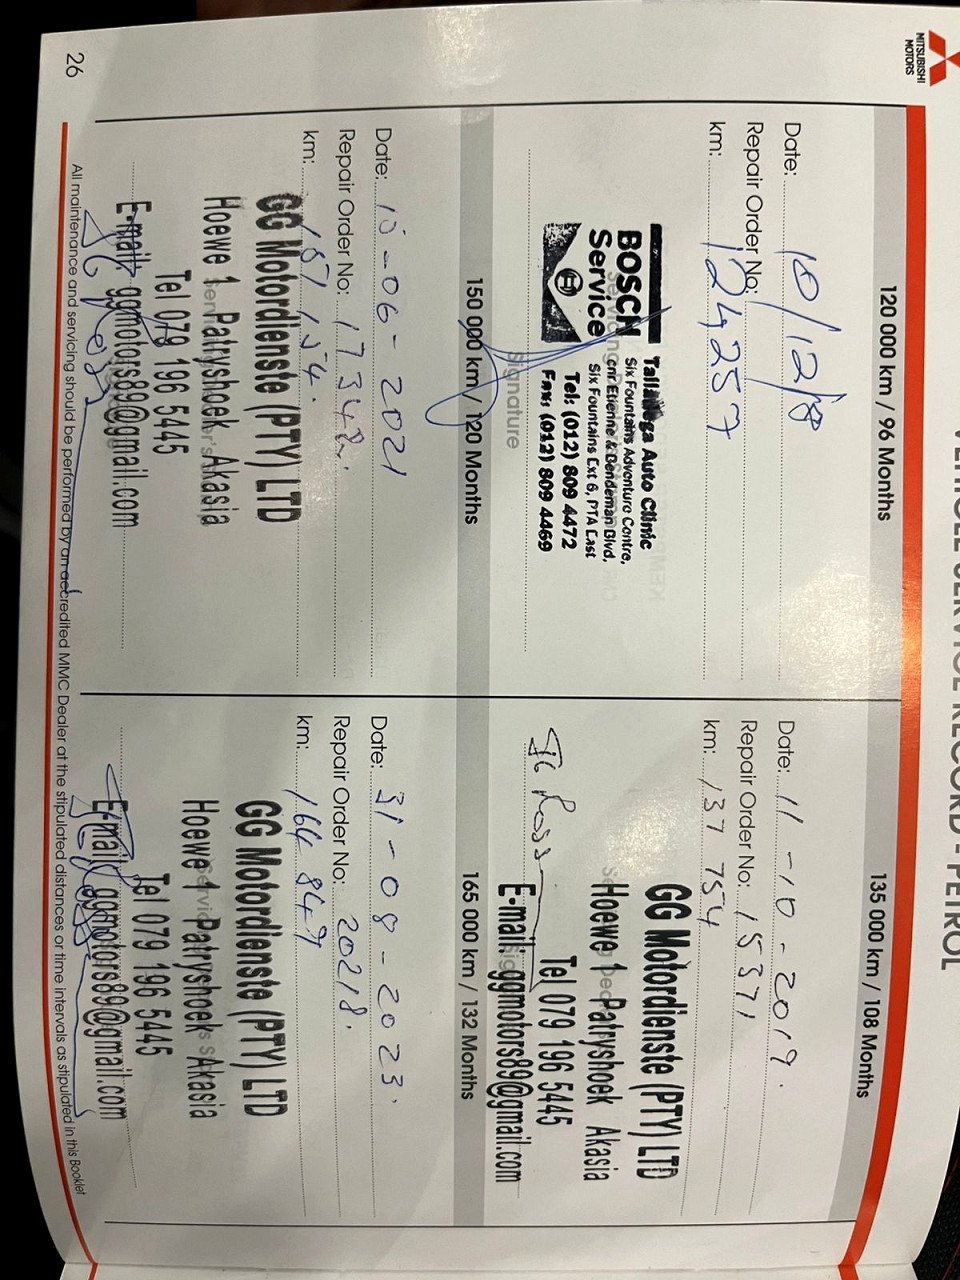 MITSUBISHI
MOTORS
VEHICLE SERVICE RECORD - PETROL
120 000 km / 96 Months
Date: 10/12/18
Repair Order No:
km: 124257
BOSCH
Service
Talladega Auto Clinic
Six Fountains Adventure Centre,
cnr Etienne & Dendeman Blvd,
Six Fountains Ext 6, PTA East
Tel: (012) 809 4472
Fax: (012) 809 4469
Signature
135 000 km / 108 Months
Date: 11-10-2019.
Repair Order No: 15371
km: 137 754
GG Motordienste (PTY) LTD
Hoewe 1 Patryshoek Akasia
Tel 079 196 5445
E-mail: ggmotors89@gmail.com
150 000 km / 120 Months
Date: 10-06-2021
Repair Order No: 17342.
km: 151 154.
GG Motordienste (PTY) LTD
Hoewe 1 Patryshoek Akasia
Tel 079 196 5445
E-mail: ggmotors89@gmail.com
165 000 km / 132 Months
Date: 31-08-2023.
Repair Order No: 20218.
km: 164 849
GG Motordienste (PTY) LTD
Hoewe 1 Patryshoek Akasia
Tel 079 196 5445
E-mail: ggmotors89@gmail.com
All maintenance and servicing should be performed by an accredited MMC Dealer at the stipulated distances or time intervals as stipulated in this Booklet
26